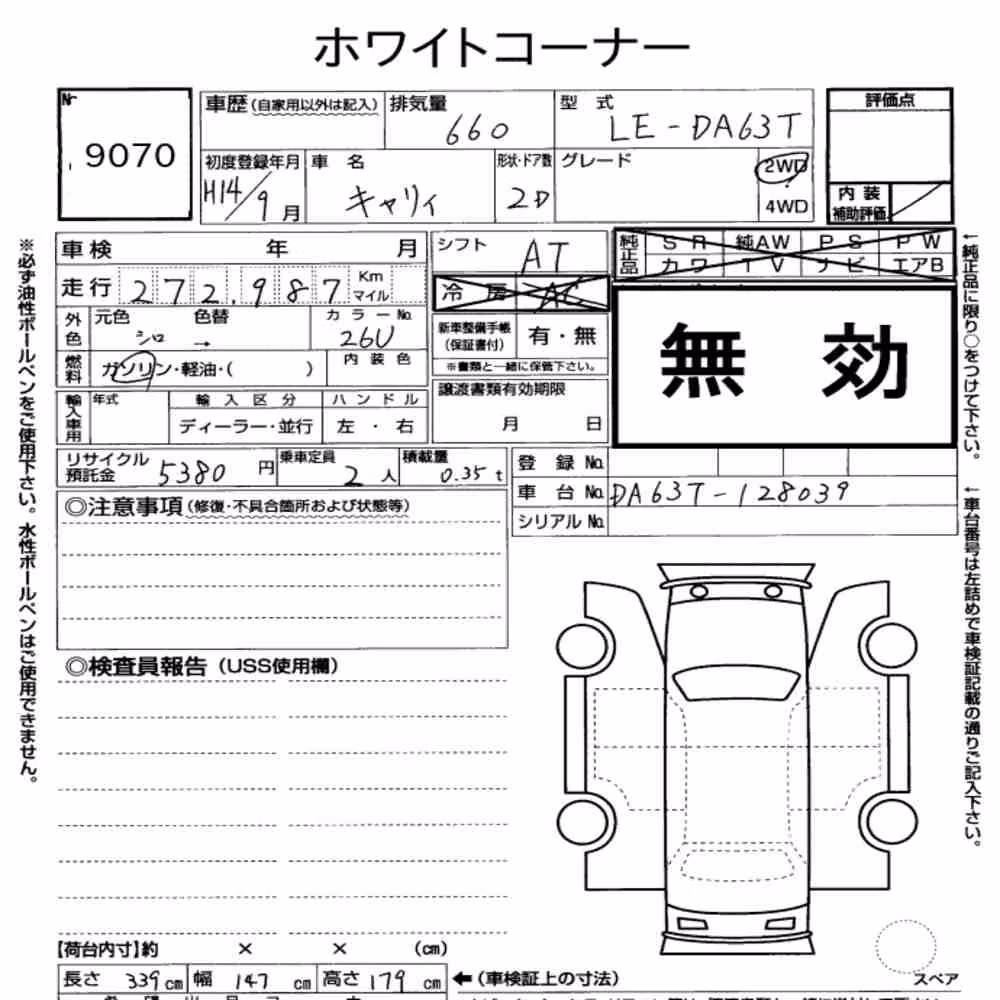 ホワイトコーナー
Nr 9070
車歴(自家用以外は記入)
排気量 660
型式 LE-DA63T
評価点
初度登録年月 H14/9月
車名 キャリィ
形状・ドア数 2D
グレード
2WD
4WD
内装
補助評価
車検 年 月
シフト AT
純正品
SR 純AW PS PW
カワ TV ナビ エアB
走行 272,987 Km マイル
冷房 AC
無効
外色 元色 シロ → 色替
カラーNo. 26U
新車整備手帳
(保証書付) 有・無
※書類と一緒に保管下さい。
燃料 ガソリン・軽油・( )
内装色
譲渡書類有効期限
月 日
輸入車用 年式
輸入区分 ディーラー・並行
ハンドル 左・右
リサイクル
預託金 5380円
乗車定員 2人
積載量 0.35t
登録No.
車台No. DA63T-128039
シリアルNo.
◎注意事項(修復・不具合箇所および状態等)
◎検査員報告(USS使用欄)
【荷台内寸】約 × × (cm)
長さ 339cm 幅 147cm 高さ 179cm
←(車検証上の寸法)
スペア
※必ず油性ボールペンをご使用下さい。水性ボールペンはご使用できません。
←純正品に限り○をつけて下さい。
←車台番号は左詰めで車検証記載の通りご記入下さい。